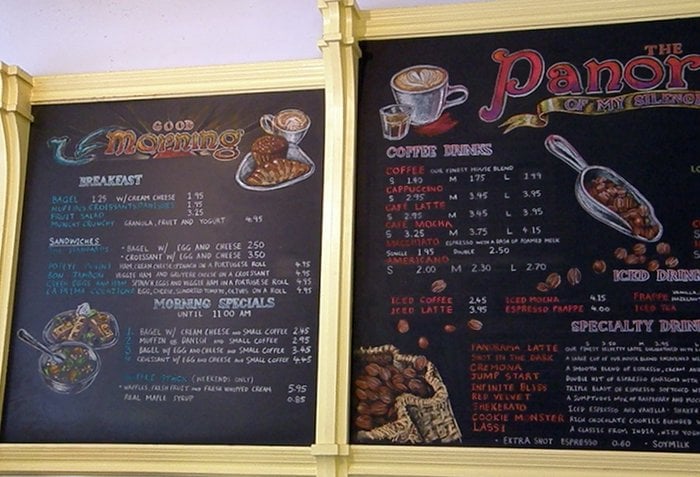 GOOD
Morning
BREAKFAST
BAGEL 1.25 W/ CREAM CHEESE 1.95
MUFFINS/CROISSANTS/DANISHES 1.95
FRUIT SALAD 3.25
MUNCHY CRUNCHY GRANOLA, FRUIT AND YOGURT 4.95
SANDWICHES
• BAGEL W/ EGG AND CHEESE 2.50
• CROISSANT W/ EGG AND CHEESE 3.50
HAM, CREAM CHEESE, SPINACH ON A PORTUGUESE ROLL 4.95
VEGGIE HAM AND GRUYERE CHEESE ON A CROISSANT 4.95
GREEN EGGS AND HAM SPINACH EGGS AND VEGGIE HAM IN A PORTUGUESE ROLL 4.95
EGG, CHEESE, SUNDRIED TOMATO, OLIVES ON A ROLL 4.95
MORNING SPECIALS
UNTIL 11:00 AM
1. BAGEL W/ CREAM CHEESE AND SMALL COFFEE 2.45
2. MUFFIN OR DANISH AND SMALL COFFEE 2.95
3. BAGEL W/ EGG AND CHEESE AND SMALL COFFEE 3.45
4. CROISSANT W/ EGG AND CHEESE AND SMALL COFFEE 4.45
(WEEKENDS ONLY)
• WAFFLES, FRESH FRUIT AND FRESH WHIPPED CREAM 5.95
REAL MAPLE SYRUP 0.85
THE
Panor
OF MY SILENC
COFFEE DRINKS
COFFEE OUR FINEST HOUSE BLEND
S 1.40 M 1.75 L 1.99
CAPPUCCINO
S 2.95 M 3.45 L 3.95
CAFE LATTE
S 2.95 M 3.45 L 3.95
CAFE MOCHA
S 3.25 M 3.75 L 4.15
MACCHIATO ESPRESSO WITH A DASH OF FOAMED MILK
SINGLE 1.95 DOUBLE 2.50
AMERICANO
S 2.00 M 2.30 L 2.70
ICED DRINK
VANILLA,
ICED COFFEE 2.45 ICED MOCHA 4.15 FRAPPE
ICED LATTE 3.95 ESPRESSO FRAPPE 4.00 ICED TEA
SPECIALTY DRIN
PANORAMA LATTE OUR FINEST VELVETY LATTE
SHOT IN THE DARK A LARGE CUP OF OUR HOUSE BLEND
CREMONA A SMOOTH BLEND OF ESPRESSO, CREAM AND
JUMP START DOUBLE HIT OF ESPRESSO ENRICHED WITH
INFINITE BLISS TRIPLE BLAST OF ESPRESSO SOFTENED WITH
RED VELVET A SUMPTUOUS MILK OF RASPBERRY AND MOC
SHEKERATO ICED ESPRESSO AND VANILLA - SHAKE
COOKIE MONSTER RICH CHOCOLATE COOKIES BLENDED W
LASSI A CLASSIC FROM INDIA, WITH YOG
• EXTRA SHOT ESPRESSO 0.60 • SOYMILK